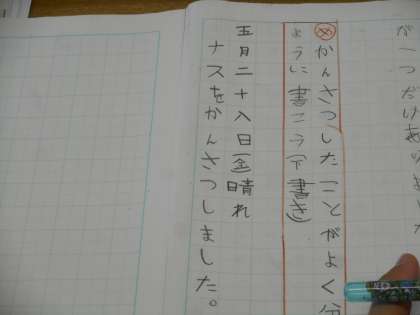 が一つだけありました
めかんさつしたことがよく分
ように書こう(下書き)
五月二十八日(金)晴れ
ナスをかんさつしました。